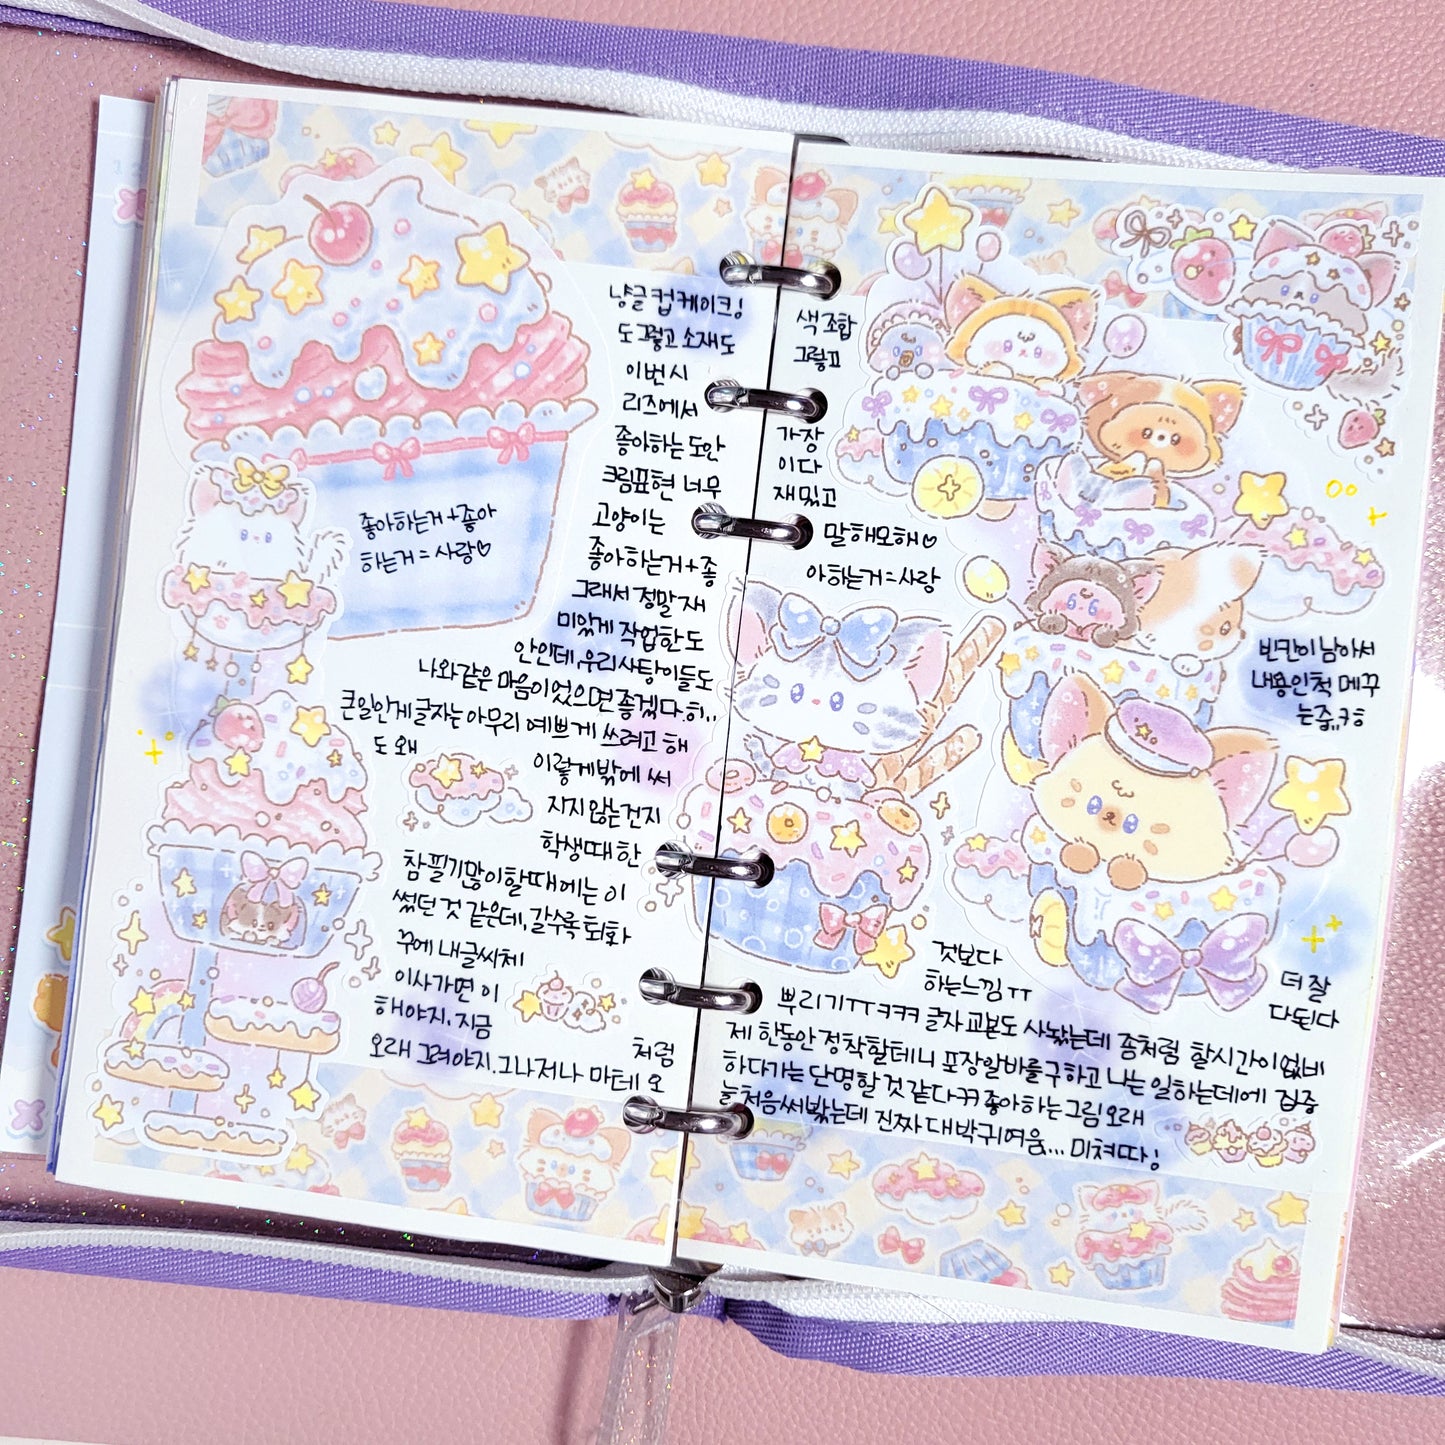 좋아하는거+좋아
하는거=사랑♡
냥글 컵케이크!
도 그렇고 소재도
이번 시
리즈에서
좋아하는 도안
크림표현 너무
고양이는
좋아하는거+좋
그래서 정말 재
미있게 작업한 도
안인데, 우리 사탕이들도
나와같은 마음이었으면 좋겠다.히..
큰일인게 글자는 아무리 예쁘게 쓰려고 해
도 왜
이렇게밖에 써
지지 않는건지
학생때 한
참 필기 많이할때에는 이
썼던 것 같은데, 갈수록 퇴화
꾸에 내글씨체
이사가면 이
해야지. 지금
처럼
오래 그려야지. 그나저나 마테 오
색조합
그렇고
가장
이다
재밌고
말해모해♡
아하는거=사랑
빈칸이 남아서
내용인척 메꾸
는중,,ㅋㅎ
것보다
하는느낌ㅠㅠ
더 잘
다된다
뿌리기ㅠㅠㅋㅋㅋ 글자 교본도 사놨는데 좀처럼 할시간이 없네
제 한동안 정착할테니 포장알바를 구하고 나는 일하는데에 집중
하다가는 단명할 것 같다ㅋㅋ 좋아하는 그림 오래
늘 처음써봤는데 진짜 대박 귀여움... 미쳐따!